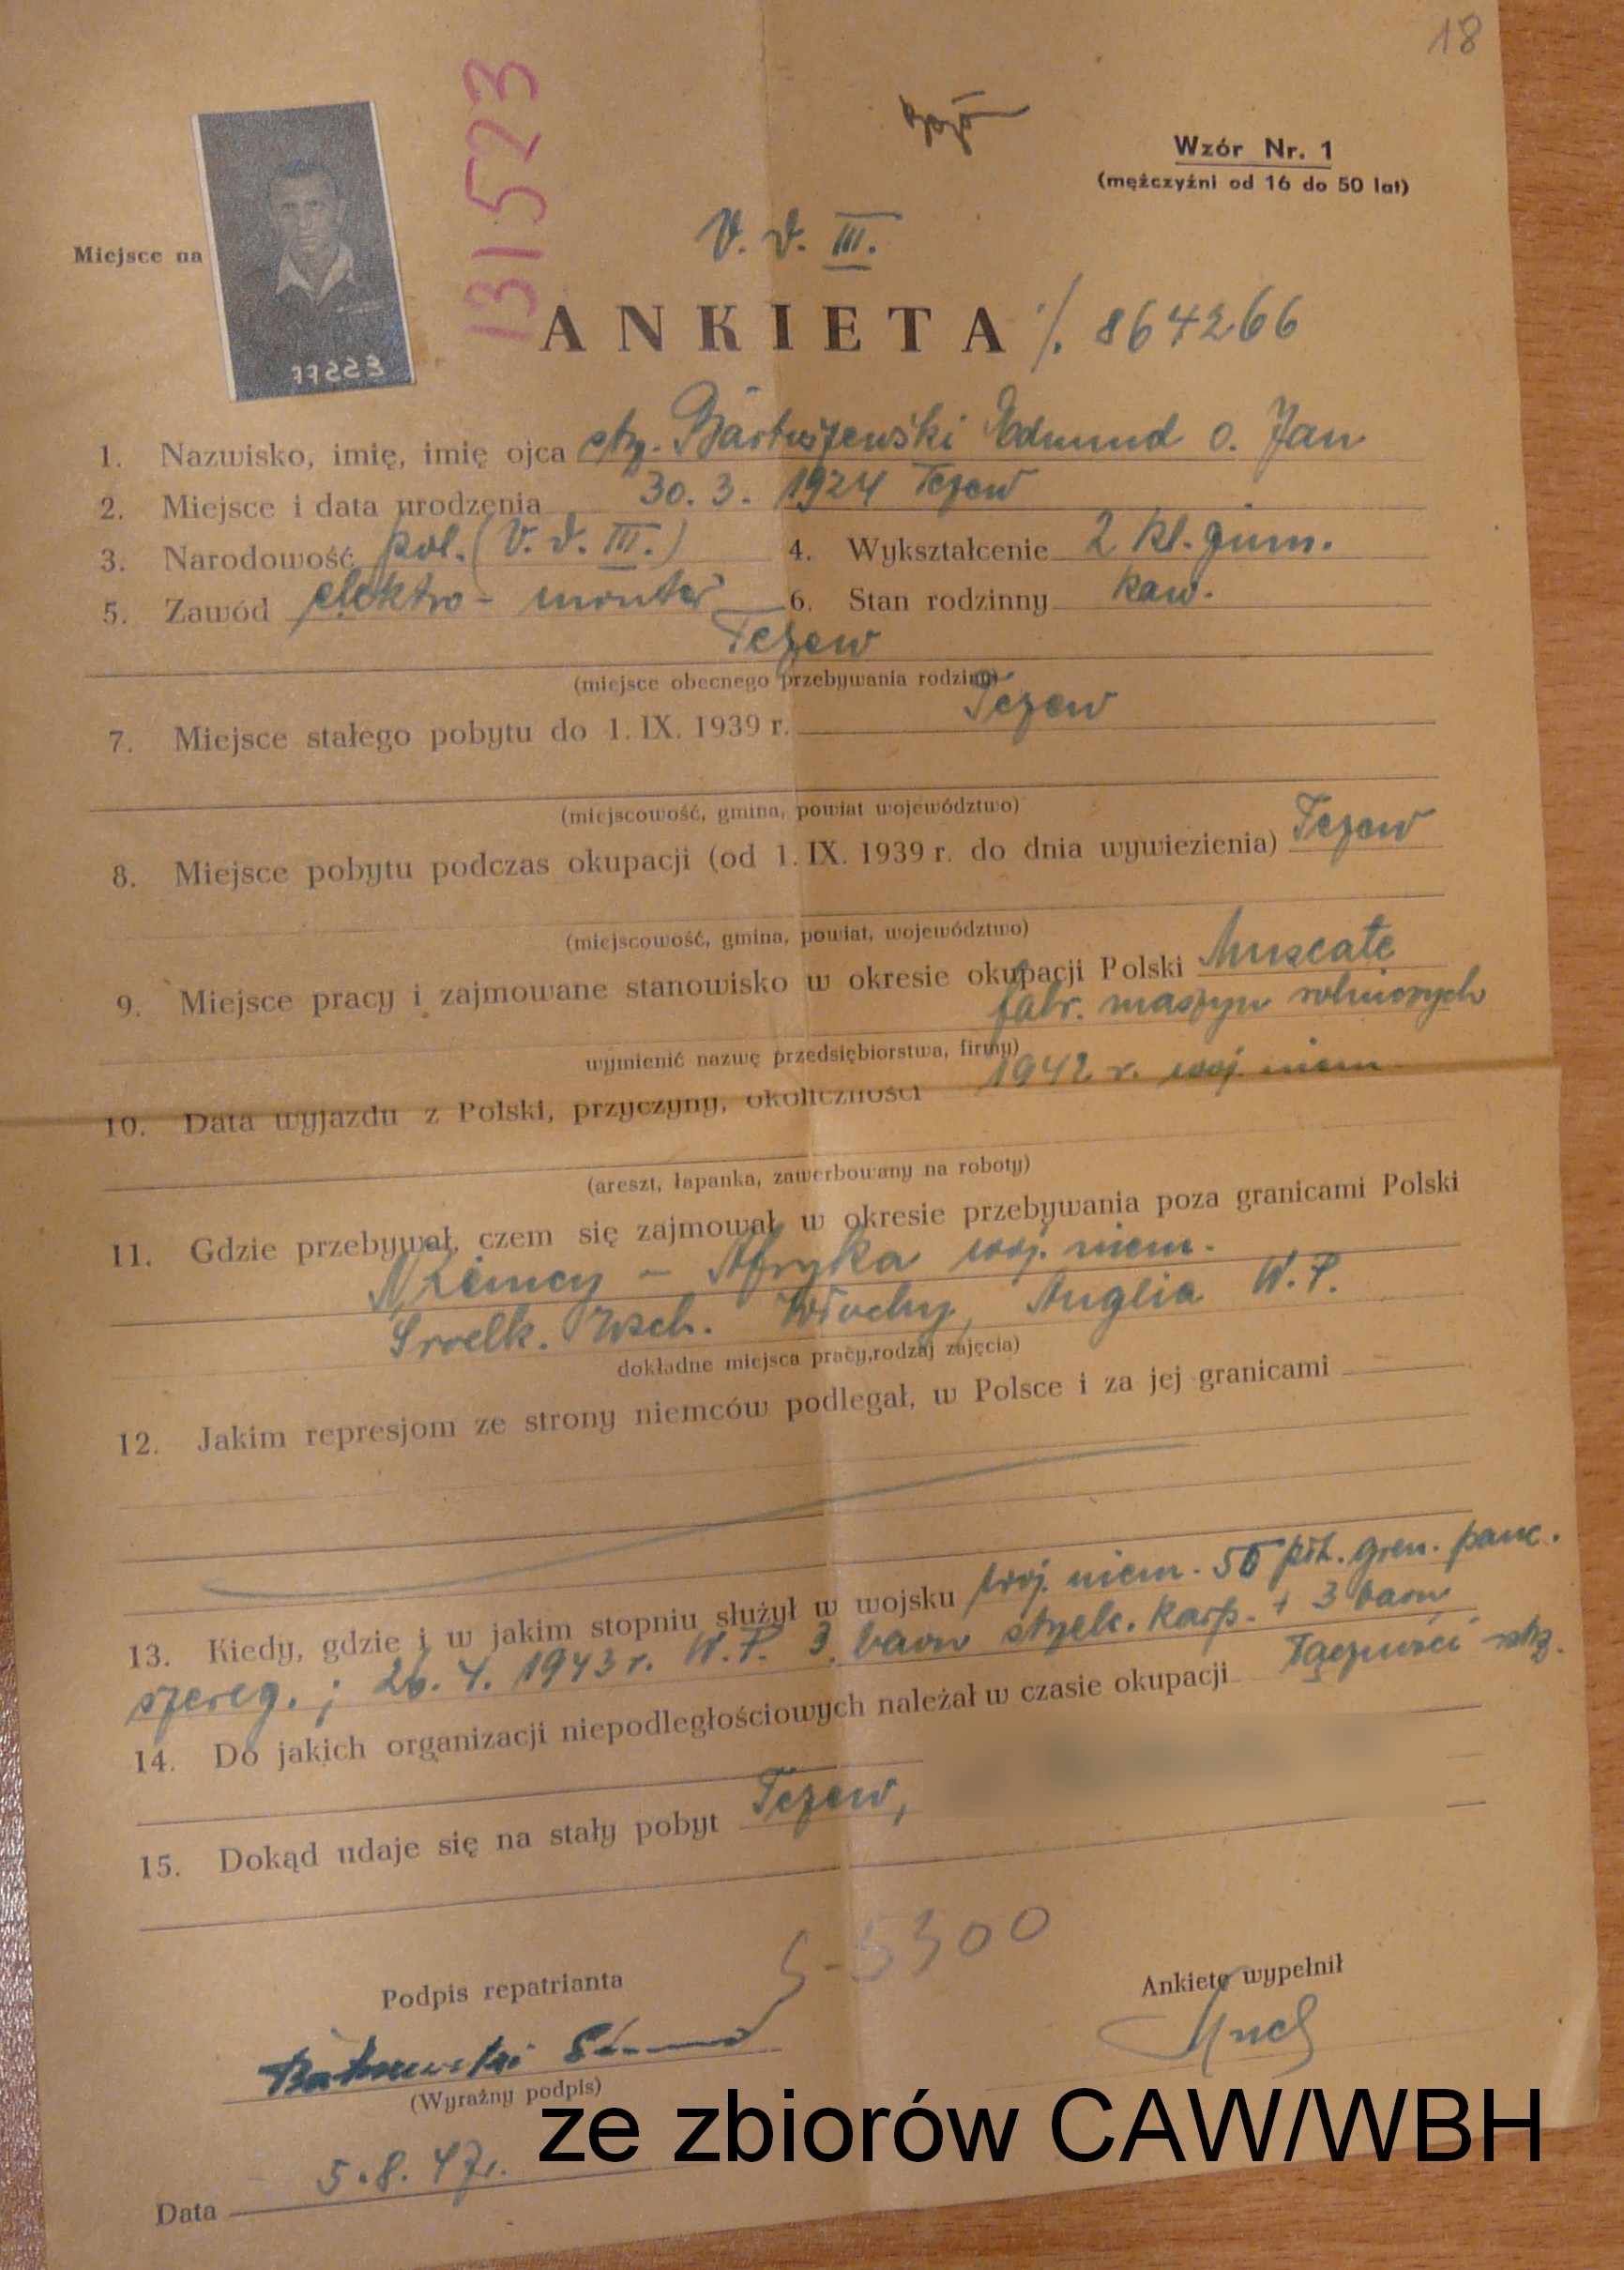 18
131523
Wzór Nr. 1
(mężczyźni od 16 do 50 lat)
Miejsce na
77223
V. D. III.
ANKIETA /. 864266
1. Nazwisko, imię, imię ojca strz. Bartuszewski Edmund o. Jan
2. Miejsce i data urodzenia 30. 3. 1924 Tczew
3. Narodowość pol. (V. D. III.) 4. Wykształcenie 2 kl. gimn.
5. Zawód elektro-monter 6. Stan rodzinny kaw.
Tczew
(miejsce obecnego przebywania rodziny)
7. Miejsce stałego pobytu do 1. IX. 1939 r. Tczew
(miejscowość, gmina, powiat województwo)
8. Miejsce pobytu podczas okupacji (od 1. IX. 1939 r. do dnia wywiezienia) Tczew
(miejscowość, gmina, powiat, województwo)
9. Miejsce pracy i zajmowane stanowisko w okresie okupacji Polski Muscate
fabr. maszyn rolniczych
wymienić nazwę przedsiębiorstwa, firmy)
10. Data wyjazdu z Polski, przyczyny, okoliczności 1942 r. woj. niem.
(areszt, łapanka, zawerbowany na roboty)
11. Gdzie przebywał, czem się zajmował w okresie przebywania poza granicami Polski
Niemcy - Afryka woj. niem.
Środk. Wsch. Włochy, Anglia W.P.
dokładne miejsca pracy,rodzaj zajęcia)
12. Jakim represjom ze strony niemców podlegał, w Polsce i za jej granicami
13. Kiedy, gdzie i w jakim stopniu służył w wojsku woj. niem. płk. gren. panc.
szereg.; 26. 4. 1943 r. W.P. 3. baon strzelc. karp. + 3 baon
łączności strz.
14. Do jakich organizacji niepodległościowych należał w czasie okupacji
15. Dokąd udaje się na stały pobyt Tczew,
5-5300
Podpis repatrianta
Ankietę wypełnił
(Wyraźny podpis)
Data 5.8.47r.
ze zbiorów CAW/WBH